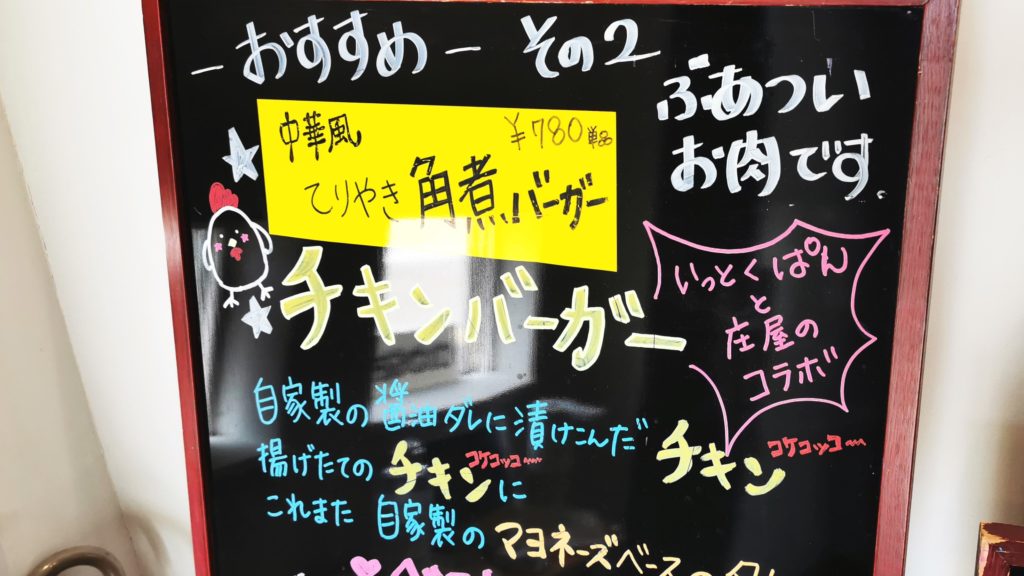 －おすすめ－ その2
ぶあつい
お肉です
中華風 ¥780単品
てりやき角煮バーガー
チキンバーガー
いっとくぱん
と
庄屋の
コラボ
自家製の醤油ダレに漬けこんだ
揚げたてのチキンに
コケコッコー
チキン
コケコッコー
これまた自家製の マヨネーズベースの